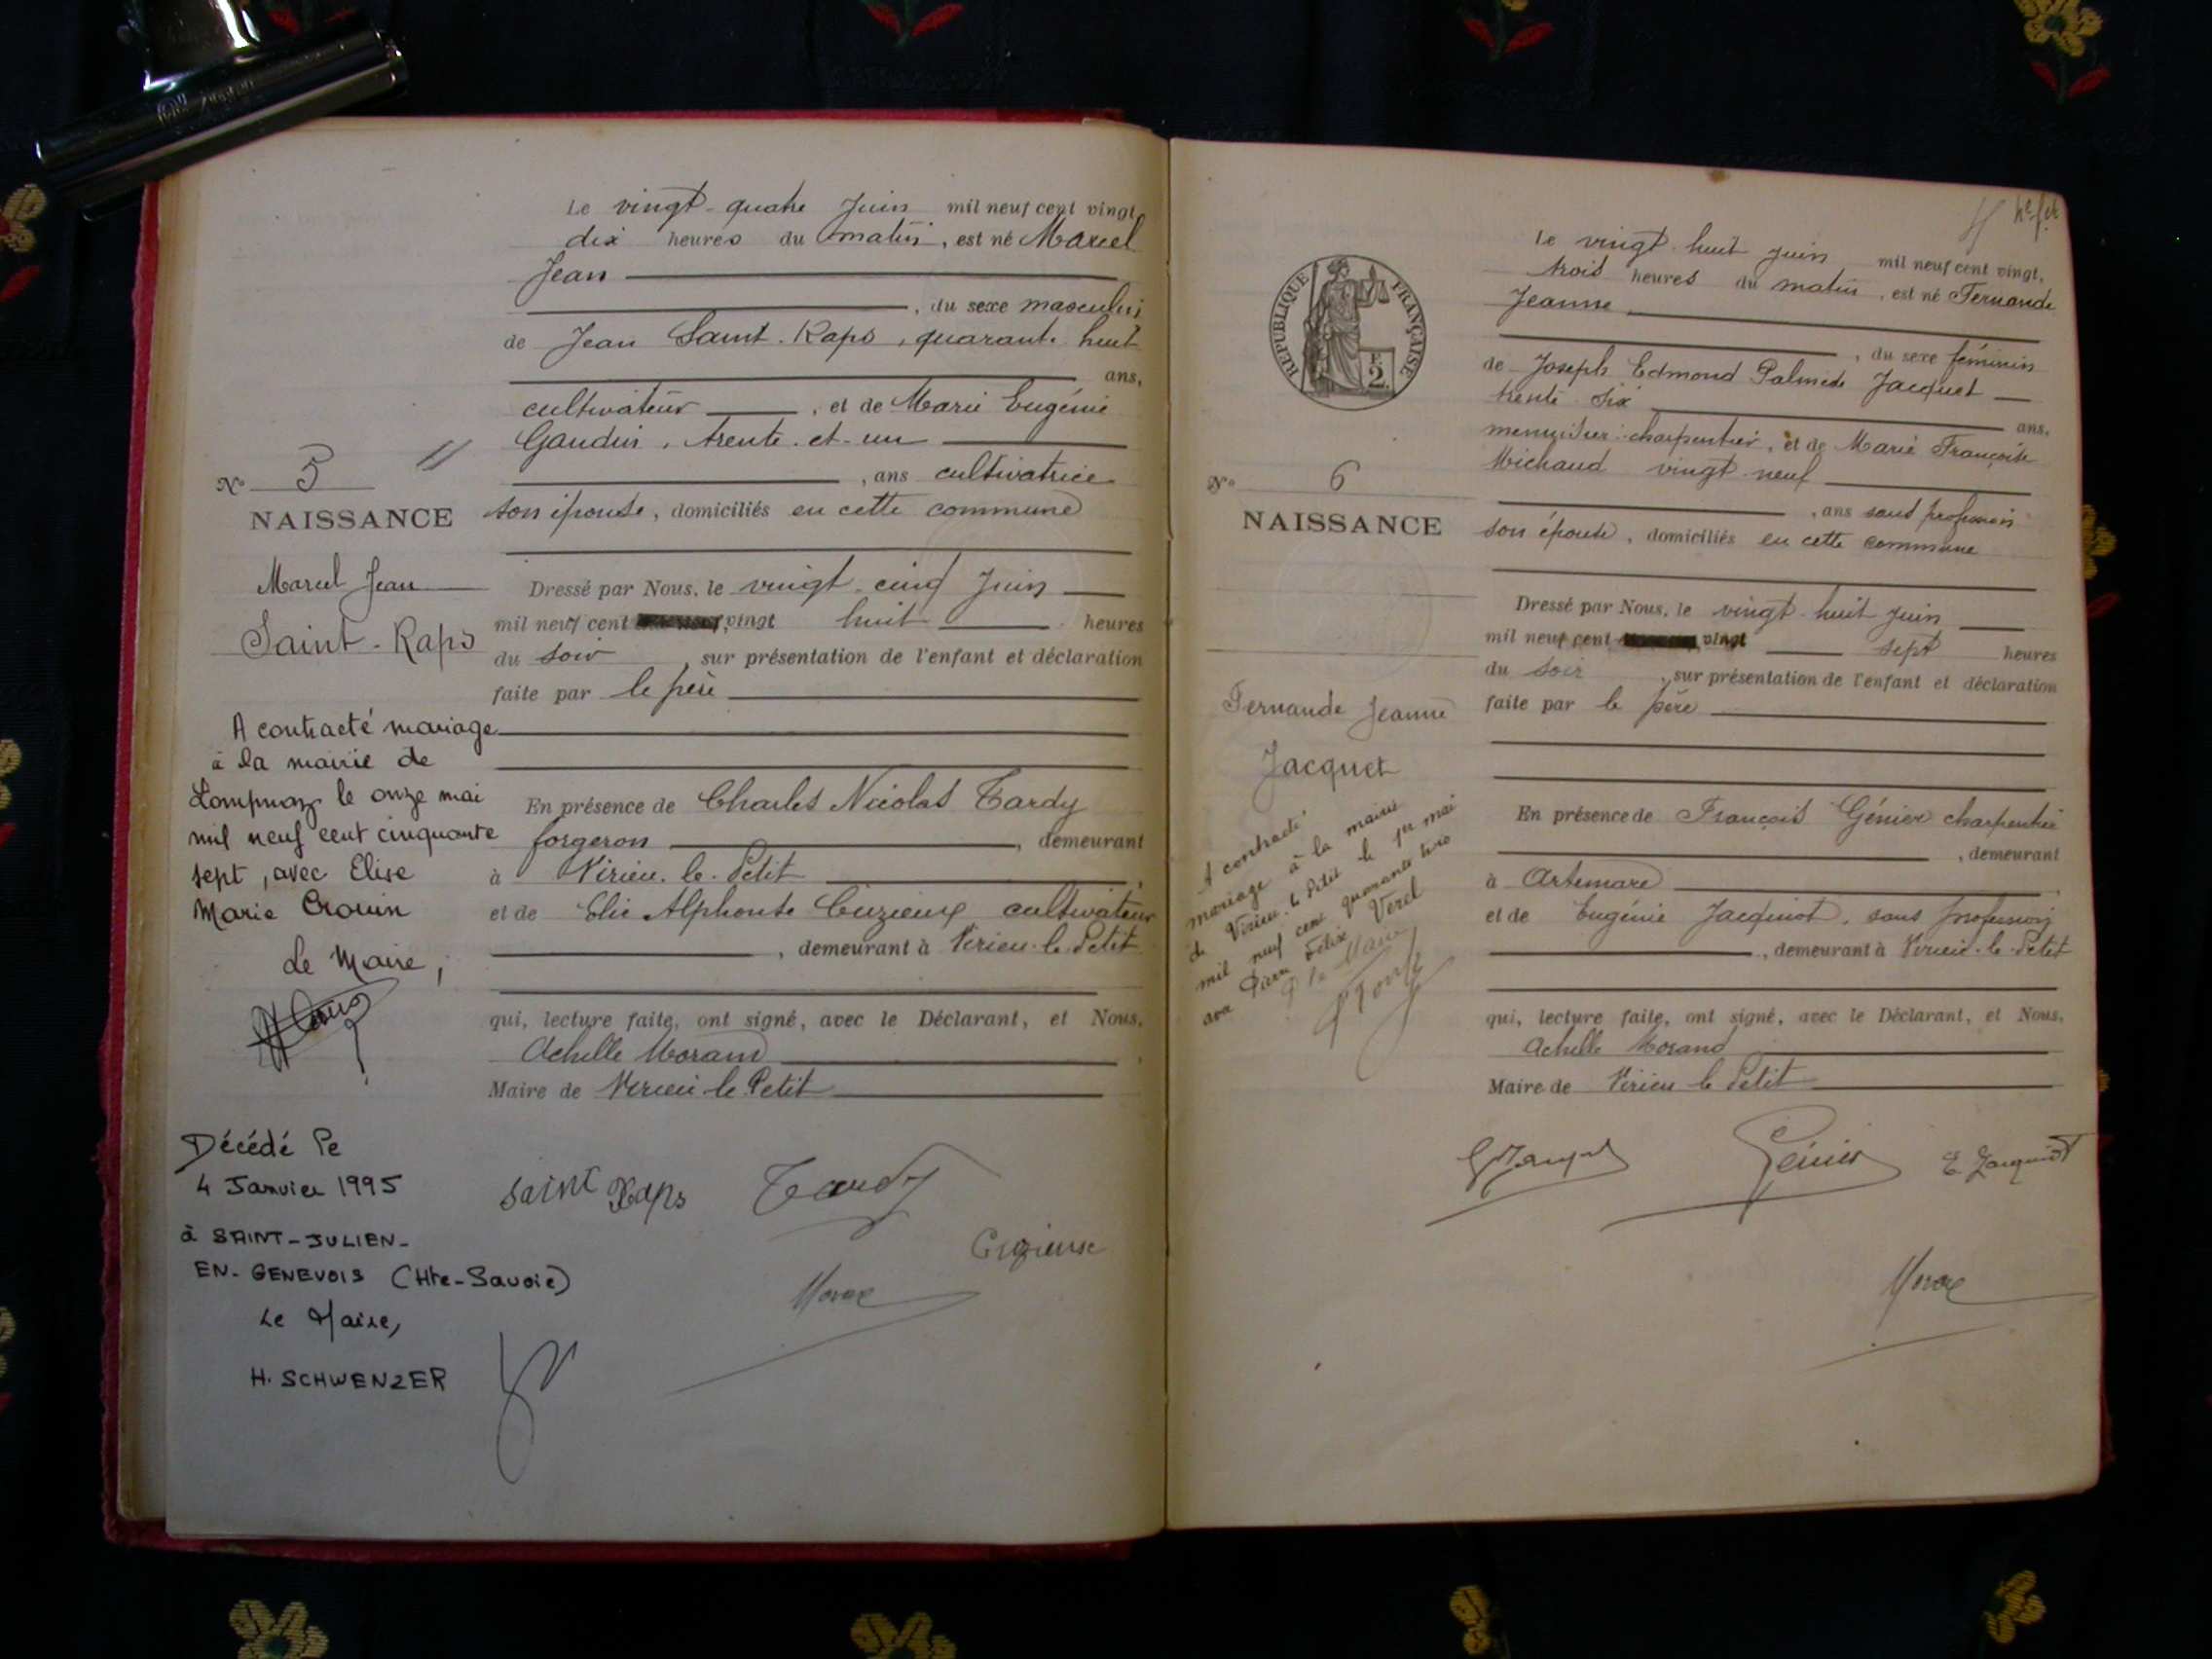 Le vingt-quatre Juin mil neuf cent vingt,
dix heures du matin, est né Marcel
Jean
, du sexe masculin
de Jean Saint-Raps, quarante huit
ans,
cultivateur, et de Marie Eugénie
Gaudin, trente-et-un
, ans cultivatrice
son épouse, domiciliés en cette commune
No 5
NAISSANCE
Marcel Jean
Saint-Raps
Dressé par Nous, le vingt-cinq Juin
mil neuf cent vingt huit heures
du soir, sur présentation de l'enfant et déclaration
faite par le père
A contracté mariage
à la mairie de
Lompnaz le onze mai
mil neuf cent cinquante
sept, avec Elise
Marie Crouin
Le Maire,
En présence de Charles Nicolas Tardy
forgeron, demeurant
à Virieu-le-Petit
et de Elie Alphonse Cuzieux cultivateur
, demeurant à Virieu-le-Petit
qui, lecture faite, ont signé, avec le Déclarant, et Nous,
Achille Morand
Maire de Virieu-le-Petit
Décédé le
4 Janvier 1995
à SAINT-JULIEN-
EN-GENEVOIS (Hte-Savoie)
Le Maire,
H. SCHWENZER
Saint Raps Tardy
RÉPUBLIQUE FRANÇAISE
2
Le vingt-huit Juin mil neuf cent vingt,
trois heures du matin, est né Fernande
Jeanne
, du sexe féminin
de Joseph Edmond Palmède Jacquet
trente-six
ans,
menuisier-charpentier, et de Marie Françoise
Michaud vingt-neuf
, ans sans profession
son épouse, domiciliés en cette commune
No 6
NAISSANCE
Fernande Jeanne
Jacquet
Dressé par Nous, le vingt-huit Juin
mil neuf cent vingt sept heures
du soir, sur présentation de l'enfant et déclaration
faite par le père
A contracté
mariage à la mairie
de Virieu-le-Petit le 1er mai
mil neuf cent quarante trois
avec Pierre Félix Verel
P le Maire
En présence de François Génier charpentier
, demeurant
à Artemare
et de Eugénie Jacquinot, sans profession
, demeurant à Virieu-le-Petit
qui, lecture faite, ont signé, avec le Déclarant, et Nous,
Achille Morand
Maire de Virieu-le-Petit
Génier E. Jacquinot